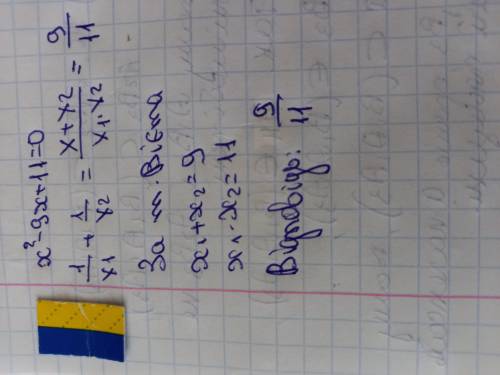 x²-9x+11=0
1/x₁ + 1/x₂ = x+x₂/x₁·x₂ = 9/11
За т. Вієта
x₁+x₂=9
x₁·x₂=11
Відповідь: 9/11